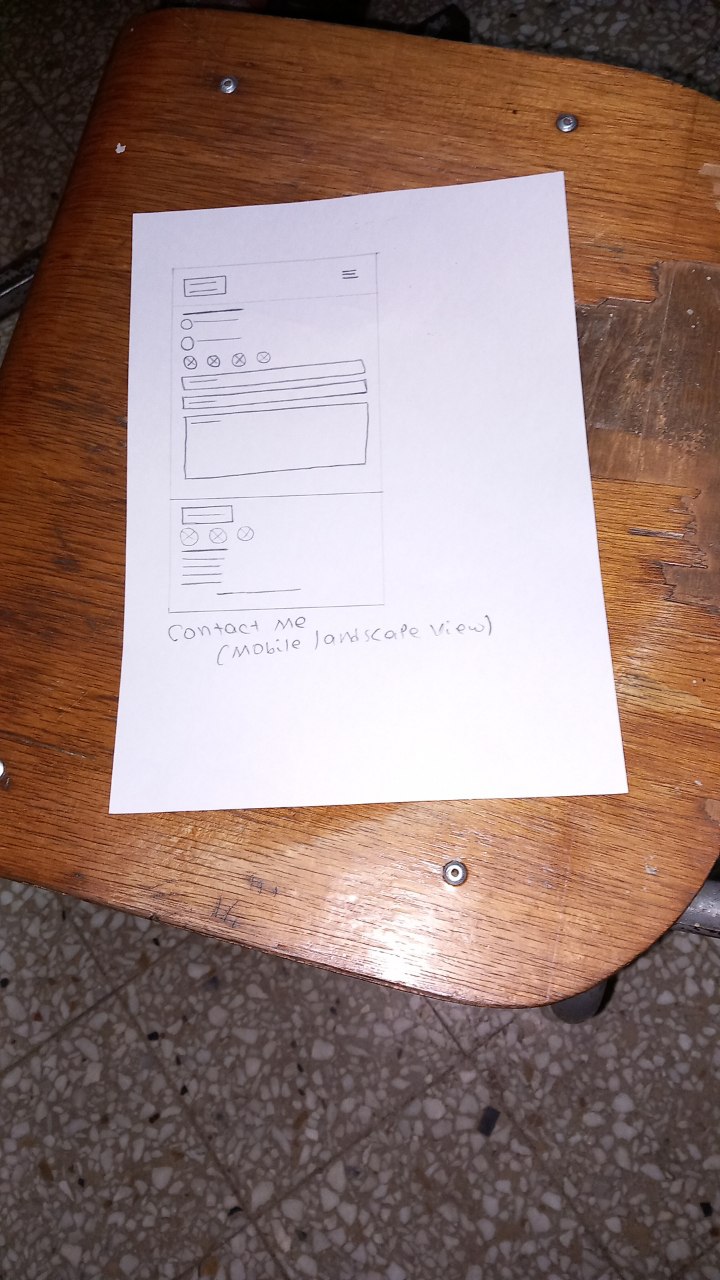 Contact Me
(Mobile landscape view)